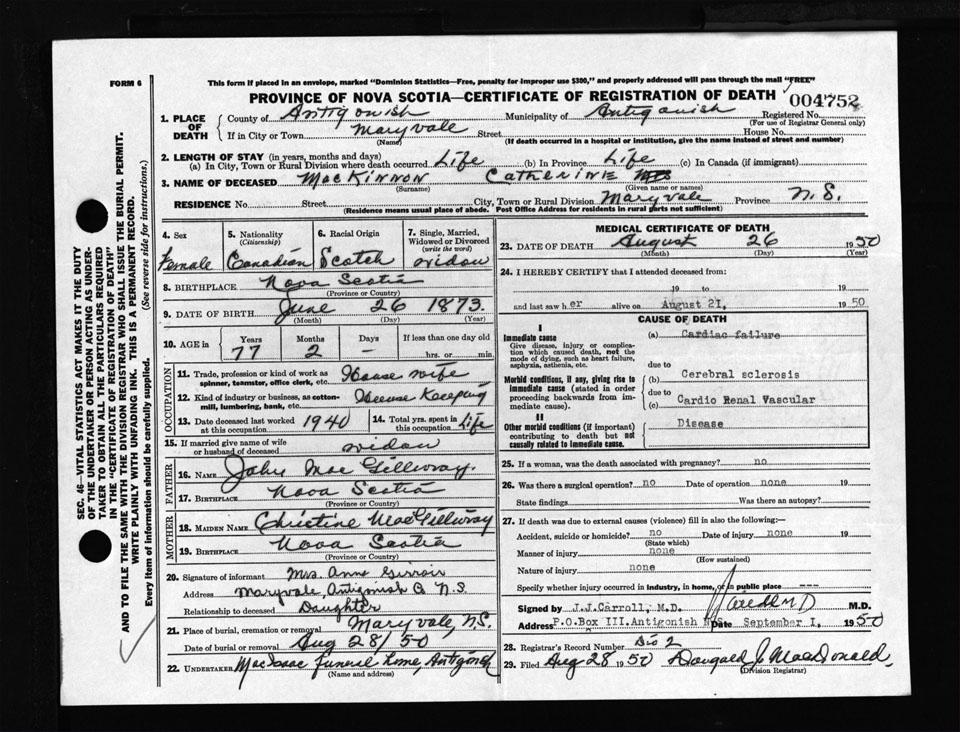 FORM 6
This form if placed in an envelope, marked "Dominion Statistics—Free, penalty for improper use $300," and properly addressed will pass through the mail "FREE"
PROVINCE OF NOVA SCOTIA—CERTIFICATE OF REGISTRATION OF DEATH
004752
1. PLACE OF DEATH
County of Antigonish Municipality of Antigonish Registered No.
(For use of Registrar General only)
If in City or Town Maryvale Street House No.
(Name) (If death occurred in a hospital or institution, give the name instead of street and number)
2. LENGTH OF STAY (in years, months and days)
(a) In City, Town or Rural Division where death occurred Life (b) In Province Life (c) In Canada (if immigrant)
3. NAME OF DECEASED MacKinnon Catherine
(Surname) (Given name or names)
RESIDENCE No. Street City, Town or Rural Division Maryvale Province N.S.
(Residence means usual place of abode. Post Office Address for residents in rural parts not sufficient)
4. Sex
Female
5. Nationality
(Citizenship)
Canadian
6. Racial Origin
Scotch
7. Single, Married, Widowed or Divorced
(write the word)
widow
8. BIRTHPLACE Nova Scotia
(Province or Country)
9. DATE OF BIRTH June 26 1873.
(Month) (Day) (Year)
10. AGE in Years Months Days If less than one day old
77 2 – hrs. or min.
OCCUPATION
11. Trade, profession or kind of work as spinner, teamster, office clerk, etc. House wife
12. Kind of industry or business, as cotton-mill, lumbering, bank, etc. House Keeping
13. Date deceased last worked at this occupation 1940
14. Total yrs. spent in this occupation Life
15. If married give name of wife or husband of deceased widow
FATHER
16. Name John MacGillivray.
17. Birthplace Nova Scotia
(Province or Country)
MOTHER
18. Maiden Name Christine MacGillivray
19. Birthplace Nova Scotia
(Province or Country)
20. Signature of informant Mrs. Anne Girroir
Address Maryvale, Antigonish Co N.S.
Relationship to deceased Daughter
21. Place of burial, cremation or removal Maryvale, N.S.
Date of burial or removal Aug 28/50
22. UNDERTAKER MacIsaac funeral home, Antigonish
(Name and address)
MEDICAL CERTIFICATE OF DEATH
23. DATE OF DEATH August 26 1950
(Month) (Day) (Year)
24. I HEREBY CERTIFY that I attended deceased from:
19 to 19
and last saw her alive on August 21, 1950
CAUSE OF DEATH
I
Immediate cause
Give disease, injury or complication which caused death, not the mode of dying, such as heart failure, asphyxia, asthenia, etc.
(a) Cardiac failure
due to
Morbid conditions, if any, giving rise to immediate cause (stated in order proceeding backwards from immediate cause).
(b) Cerebral sclerosis
due to
(c) Cardio Renal Vascular
II
Other morbid conditions (if important) contributing to death but not causally related to immediate cause.
Disease
25. If a woman, was the death associated with pregnancy? no
26. Was there a surgical operation? no Date of operation none 19
State findings Was there an autopsy?
27. If death was due to external causes (violence) fill in also the following:—
Accident, suicide or homicide? no Date of injury none 19
(State which)
Manner of injury none
(How sustained)
Nature of injury none
Specify whether injury occurred in industry, in home, or in public place ---
Signed by J.J.Carroll, M.D. M.D.
Address P.O.Box III.Antigonish N.S. September I, 1950
28. Registrar's Record Number
29. Filed Aug 28 1950 Dougald J. MacDonald,
(Division Registrar)
SEC. 46—VITAL STATISTICS ACT MAKES IT THE DUTY OF THE UNDERTAKER OR PERSON ACTING AS UNDERTAKER TO OBTAIN ALL THE PARTICULARS REQUIRED IN THE "CERTIFICATE OF REGISTRATION OF DEATH"
AND TO FILE THE SAME WITH THE DIVISION REGISTRAR WHO SHALL ISSUE THE BURIAL PERMIT.
WRITE PLAINLY WITH UNFADING INK. THIS IS A PERMANENT RECORD.
Every item of information should be carefully supplied. (See reverse side for instructions.)